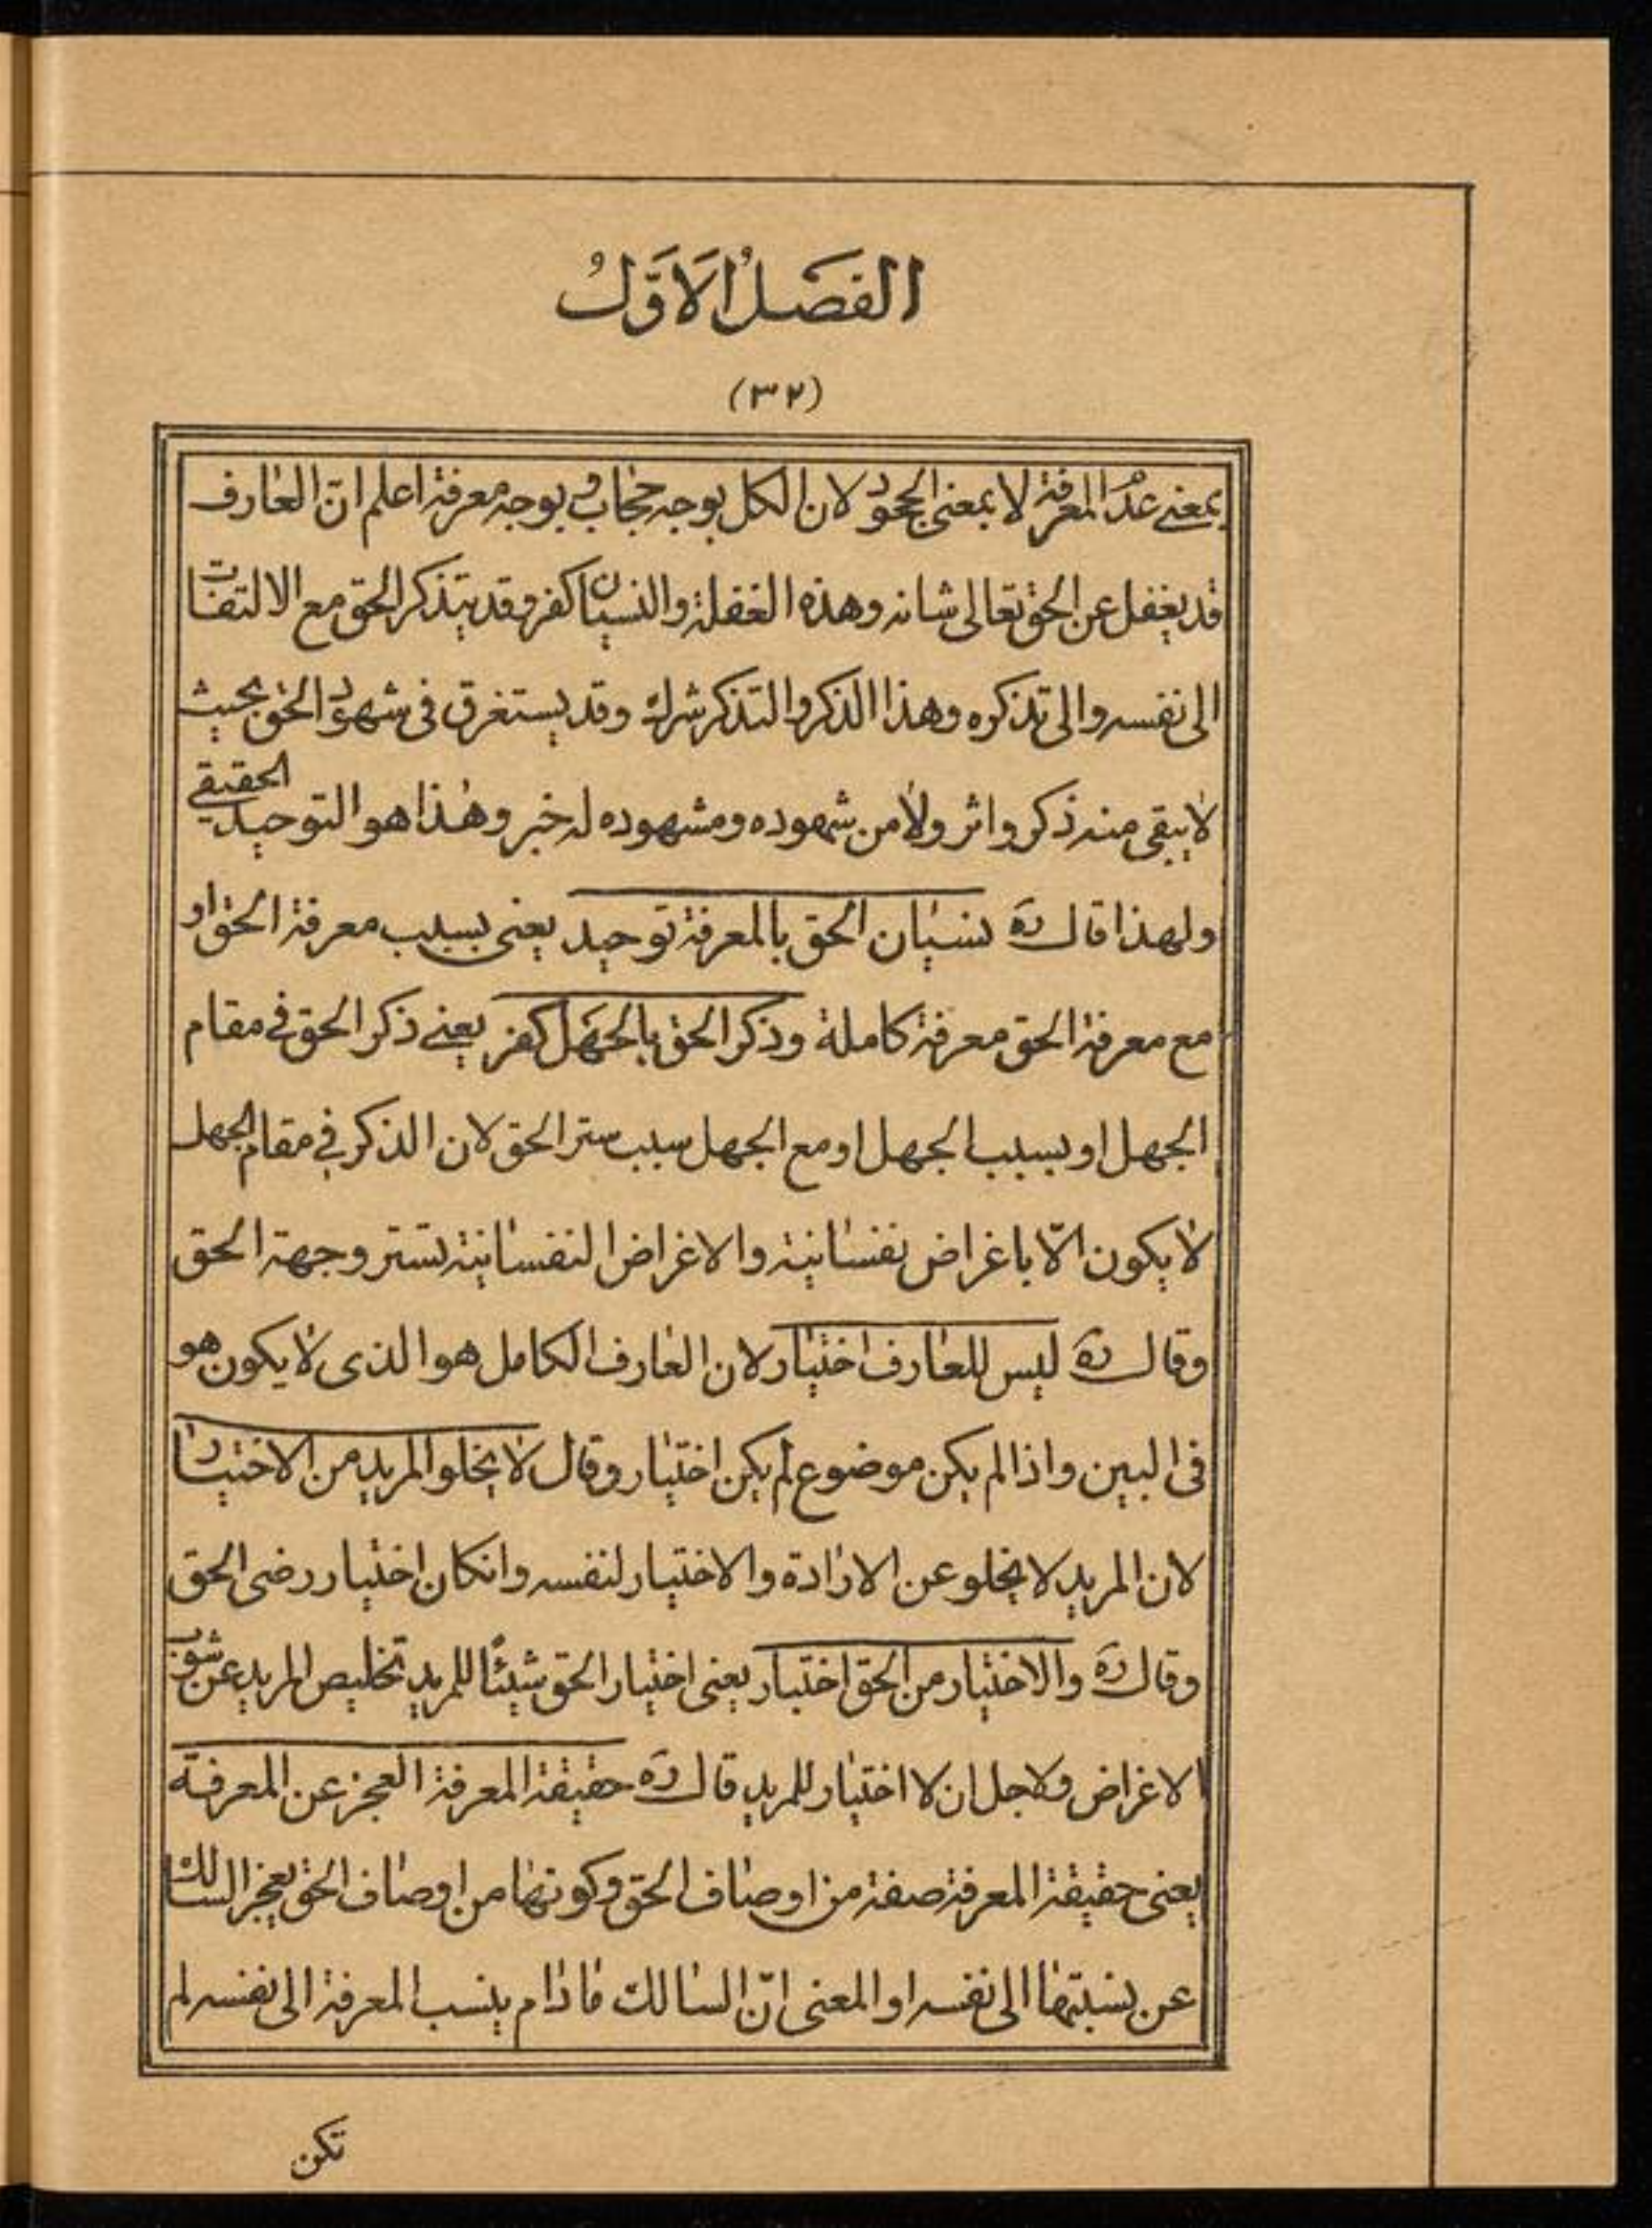 الفصل الاول
(٣٢)
بمعنى عدم المعرفة لا بمعنى الجحود لان الكل بوجه حجاب وبوجه معرفة اعلم انّ العارف
قد يغفل عن الحق تعالى شانه وهذه الغفلة والنسيان كفر وقد يتذكر الحق مع الالتفات
الى نفسه والى تذكره وهذا الذكر والتذكر شرك وقد يستغرق فى شهود الحق بحيث
لا يبقى منه ذكر واثر ولا من شهوده ومشهوده له خبر وهذا هو التوحيد الحقيقي
ولهذا قال ره نسيان الحق بالمعرفة توحيد يعنى بسبب معرفة الحق او
مع معرفة الحق معرفة كاملة وذكر الحق بالجهل كفر يعنے ذكر الحق في مقام
الجهل او بسبب الجهل او مع الجهل سبب ستر الحق لان الذكر في مقام الجهل
لا يكون الّا باغراض نفسانية والاغراض النفسانية تستر وجهة الحق
وقال ره ليس للعارف اختيار لان العارف الكامل هو الذى لا يكون هو
فى البين واذا لم يكن موضوع لم يكن اختيار وقال لا يخلو المريد من الاختيار
لان المريد لا يخلو عن الارادة والاختيار لنفسه وانكان اختيار رضى الحق
وقال ره والاختيار من الحق اختبار يعنى اختيار الحق شيئًا للمريد تخليص المريد عن شوب
الاغراض ولاجل ان لا اختيار للمريد قال ره حقيقة المعرفة العجز عن المعرفة
يعنى حقيقة المعرفة صفة من اوصاف الحق وكونها من اوصاف الحق يعجز السالك
عن نسبتها الى نفسه او المعنى انّ السالك مادام ينسب المعرفة الى نفسه لم
تكن